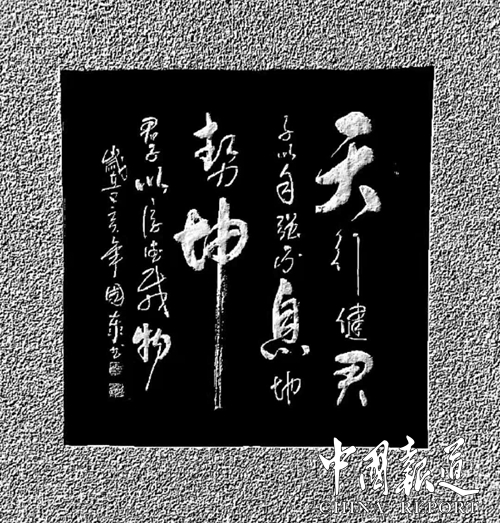 天行健君
子以自强不息地
勢坤
君子以厚德载物
歲己亥年國书
中國報道
CHINA REPORT